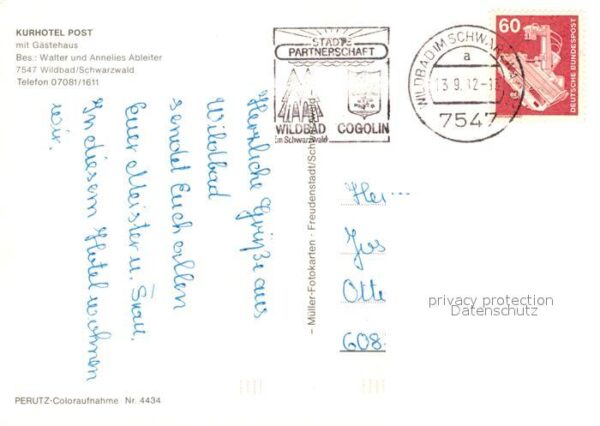 KURHOTEL POST
mit Gästehaus
Bes.: Walter und Annelies Ableiter
7547 Wildbad/Schwarzwald
Telefon 07081/1611
STÄDTE
PARTNERSCHAFT
WILDBAD COGOLIN
im Schwarzwald
WILDBAD IM SCHWARZW
a
13.9.82-1
7547
60
DEUTSCHE BUNDESPOST
Herzliche Grüße aus
Wildbad
sendet Euch allen
Euer Meister u. Frau.
In diesem Hotel wohnen
wir.
– Müller-Fotokarten · Freudenstadt/Schw
Otte
608
privacy protection
Datenschutz
PERUTZ-Coloraufnahme Nr. 4434